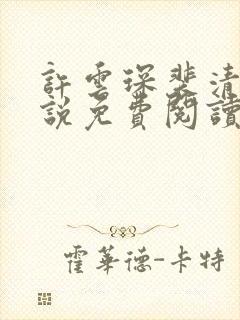 許雲琛裴清
說免費閱讀
霍華德-卡特